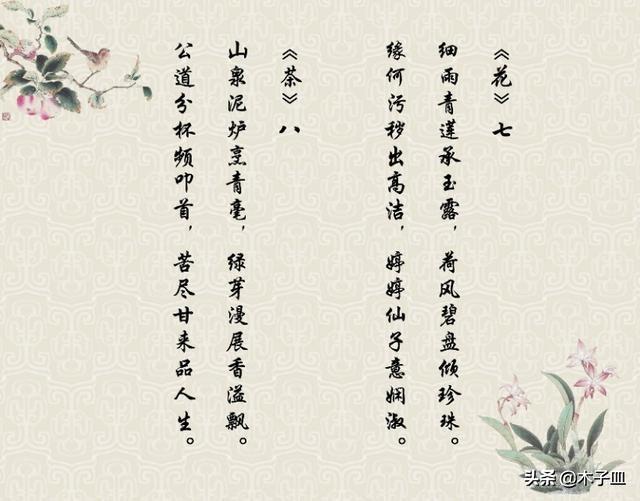 《花》七
细雨青莲承玉露，荷风碧盘倾珍珠。
缘何污秽出高洁，婷婷仙子意娴淑。
《茶》八
山泉泥炉烹青毫，绿芽漫展香溢飘。
公道分杯频叩首，苦尽甘来品人生。
头条@木子皿